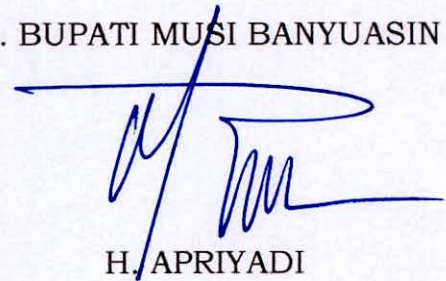 . BUPATI MUSI BANYUASIN
H. APRIYADI